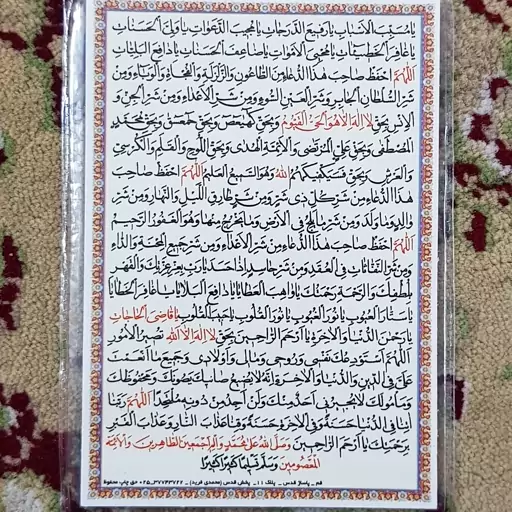 يا مُسَبِّبَ الْأَسْبابِ يا رَفيعَ الدَّرَجاتِ يا مُجيبَ الدَّعَواتِ يا وَلِيَّ الْحَسَناتِ
يا غافِرَ الْخَطيئاتِ يا مُحْيِيَ الْأَمْواتِ يا مُضاعِفَ الْحَسَناتِ يا دافِعَ الْبَلِيّاتِ
اَللّهُمَّ احْفَظْ صاحِبَ هذَا الدُّعاءِ مِنَ الطّاعُونِ وَالزَّلْزَلَةِ وَالْفُجْأَةِ وَالْوَباءِ وَمِنْ
شَرِّ السُّلْطانِ الْجابِرِ وَشَرِّ الْعَيْنِ السُّوءِ وَمِنْ شَرِّ الْأَعْداءِ وَمِنْ شَرِّ الْجِنِّ وَ
الْاِنْسِ بِحَقِّ لا اِلهَ اِلّا هُوَ الْحَيُّ الْقَيُّومُ وَبِحَقِّ كهيعص وَبِحَقِّ حمعسق وَبِحَقِّ مُحَمَّدٍ
الْمُصْطَفى وَبِحَقِّ عَلِيٍّ الْمُرْتَضى وَالْأَئِمَّةِ الْهُدى وَبِحَقِّ اللَّوْحِ وَالْقَلَمِ وَالْكُرْسِيِّ
وَالْعَرْشِ وَبِحَقِّ فَسَيَكْفيكَهُمُ اللهُ وَهُوَ السَّميعُ الْعَليمُ اَللّهُمَّ احْفَظْ صاحِبَ
هذَا الدُّعاءِ مِنْ شَرِّ كُلِّ ذي شَرٍّ وَمِنْ شَرِّ طارِقِ اللَّيْلِ وَالنَّهارِ وَمِنْ شَرِّ
والِدٍ وَما وَلَدَ وَمِنْ شَرِّ ما يَلِجُ فِي الْأَرْضِ وَما يَخْرُجُ مِنْها وَهُوَ الْغَفُورُ الرَّحيمُ
اَللّهُمَّ احْفَظْ صاحِبَ هذَا الدُّعاءِ مِنْ شَرِّ الْأَعْداءِ وَمِنْ شَرِّ جَميعِ الْمِحْنَةِ وَالدّاءِ
وَمِنْ شَرِّ النَّفّاثاتِ فِي الْعُقَدِ وَمِنْ شَرِّ حاسِدٍ اِذا حَسَدَ يا رَبِّ بِعِزِّ عِزَّتِكَ وَالْقَهْرِ
بِلُطْفِكَ وَالرَّحْمَةِ رَحْمَتِكَ يا واهِبَ الْعَطايا يا دافِعَ الْبَلايا يا غافِرَ الْخَطايا
يا سَتّارَ الْعُيُوبِ يا نُورَ الْقُلُوبِ يا حَبيبَ الْقُلُوبِ يا قاضِيَ الْحاجاتِ
يا رَحْمنَ الدُّنْيا وَالْآخِرَةِ يا اَرْحَمَ الرّاحِمينَ بِحَقِّ لا اِلهَ اِلَّا اللهُ تَصيرُ الْأُمُورُ
اَللّهُمَّ اَسْتَوْدِعُكَ نَفْسي وَرُوحي وَمالي وَاَوْلادي وَجَميعَ ما اَنْعَمْتَ
عَلَيَّ فِي الدّينِ وَالدُّنْيا وَالْآخِرَةِ اِنَّهُ لا يَضيعُ صانِعُكَ وَمَحْفُوظُكَ
وَلَنْ اَجِدَ مِنْ دُونِهِ مُلْتَحَداً اَللّهُمَّ رَبَّنا
آتِنا فِي الدُّنْيا حَسَنَةً وَفِي الْآخِرَةِ حَسَنَةً وَقِنا عَذابَ النّارِ وَعَذابَ الْقَبْرِ
بِرَحْمَتِكَ يا اَرْحَمَ الرّاحِمينَ وَصَلَّى اللهُ عَلى مُحَمَّدٍ وَآلِهِ اَجْمَعينَ الطّاهِرينَ وَالْأَئِمَّةِ
الْمَعْصُومينَ وَسَلَّمَ تَسْليماً كَثيراً كَثيراً
قم _ پاساژ قدس _ پلاک ۱۱ _ پخش قدس (محمدی فرید) _ ۳۷۷۴۳۷۲۲-۰۲۵ حق چاپ محفوظ